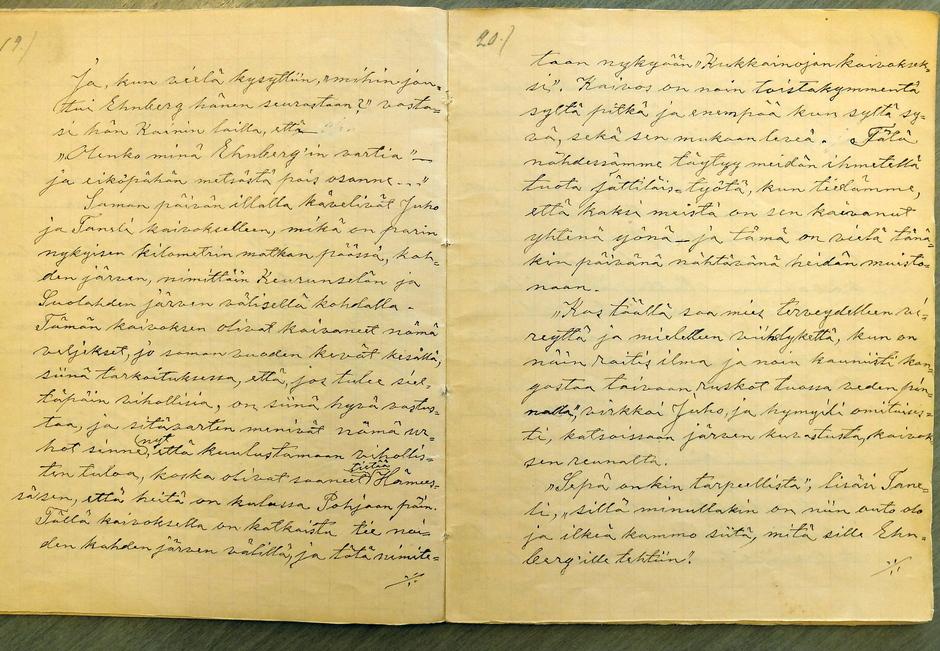 19.)
Ja, kun vielä kysyttiin, "mihin jou-
tui Ehnberg hänen seurastaan?" vasta-
si hän Kainin lailla, että
"Olenko minä Ehnberg'in vartia" —
ja eiköpähän metsästä pois osanne..."
Saman päivän illalla kävelivät Juho
ja Taneli kaivokselleen, mikä on parin
nykyisen kilometrin matkan päässä, kah-
den järven, nimittäin Keurunselän ja
Suolahden järven välisellä kohdalla.
Tämän kaivoksen olivat kaivaneet nämä
veljekset, jo saman vuoden kevät kesällä,
siinä tarkoituksessa, että, jos tulee siel-
täpäin vihollisia, on siinä hyvä vastus-
taa, ja sitävarten menivät nämä ur-
hot sinne nyt, että kuulustamaan vihollis-
ten tuloa, koska olivat saaneet tietää Hämees-
säsen, että heitä on kulussa Pohjaan päin.
Tällä kaivoksella on katkaistu tie näi-
den kahden järven välillä, ja tätä nimite-
20.)
taan nykyään "Kukkainojan kaivoksek-
si". Kaivos on noin toistakymmentä
syltä pitkä ja enempää kun syltä sy-
vä, sekä sen mukaan leveä. Tätä
nähdessämme täytyy meidän ihmetellä
tuota jättiläis-työtä, kun tiedämme,
että kaksi meistä on sen kaivanut
yhtenä yönä — ja tämä on vielä tänä-
kin päivänä nähtävänä heidän muisto-
naan.
"Kas täällä saa mies terveydelleen vi-
reyttä ja mielelleen viihdykettä, kun on
näin raitis ilma ja noin kauniisti kan-
gastaa taivaan ruskot tuossa veden pin-
nalla", virkkoi Juho, ja hymyili omituises-
ti, katsoissaan järven kuvastusta, kaivok
sen reunalta.
"Sepä onkin tarpeellista", lisäsi Tane-
li, "sillä minullakin on niin outo olo
ja ilkeä kammo siitä, mitä sille Ehn-
berg'ille tehtiin!